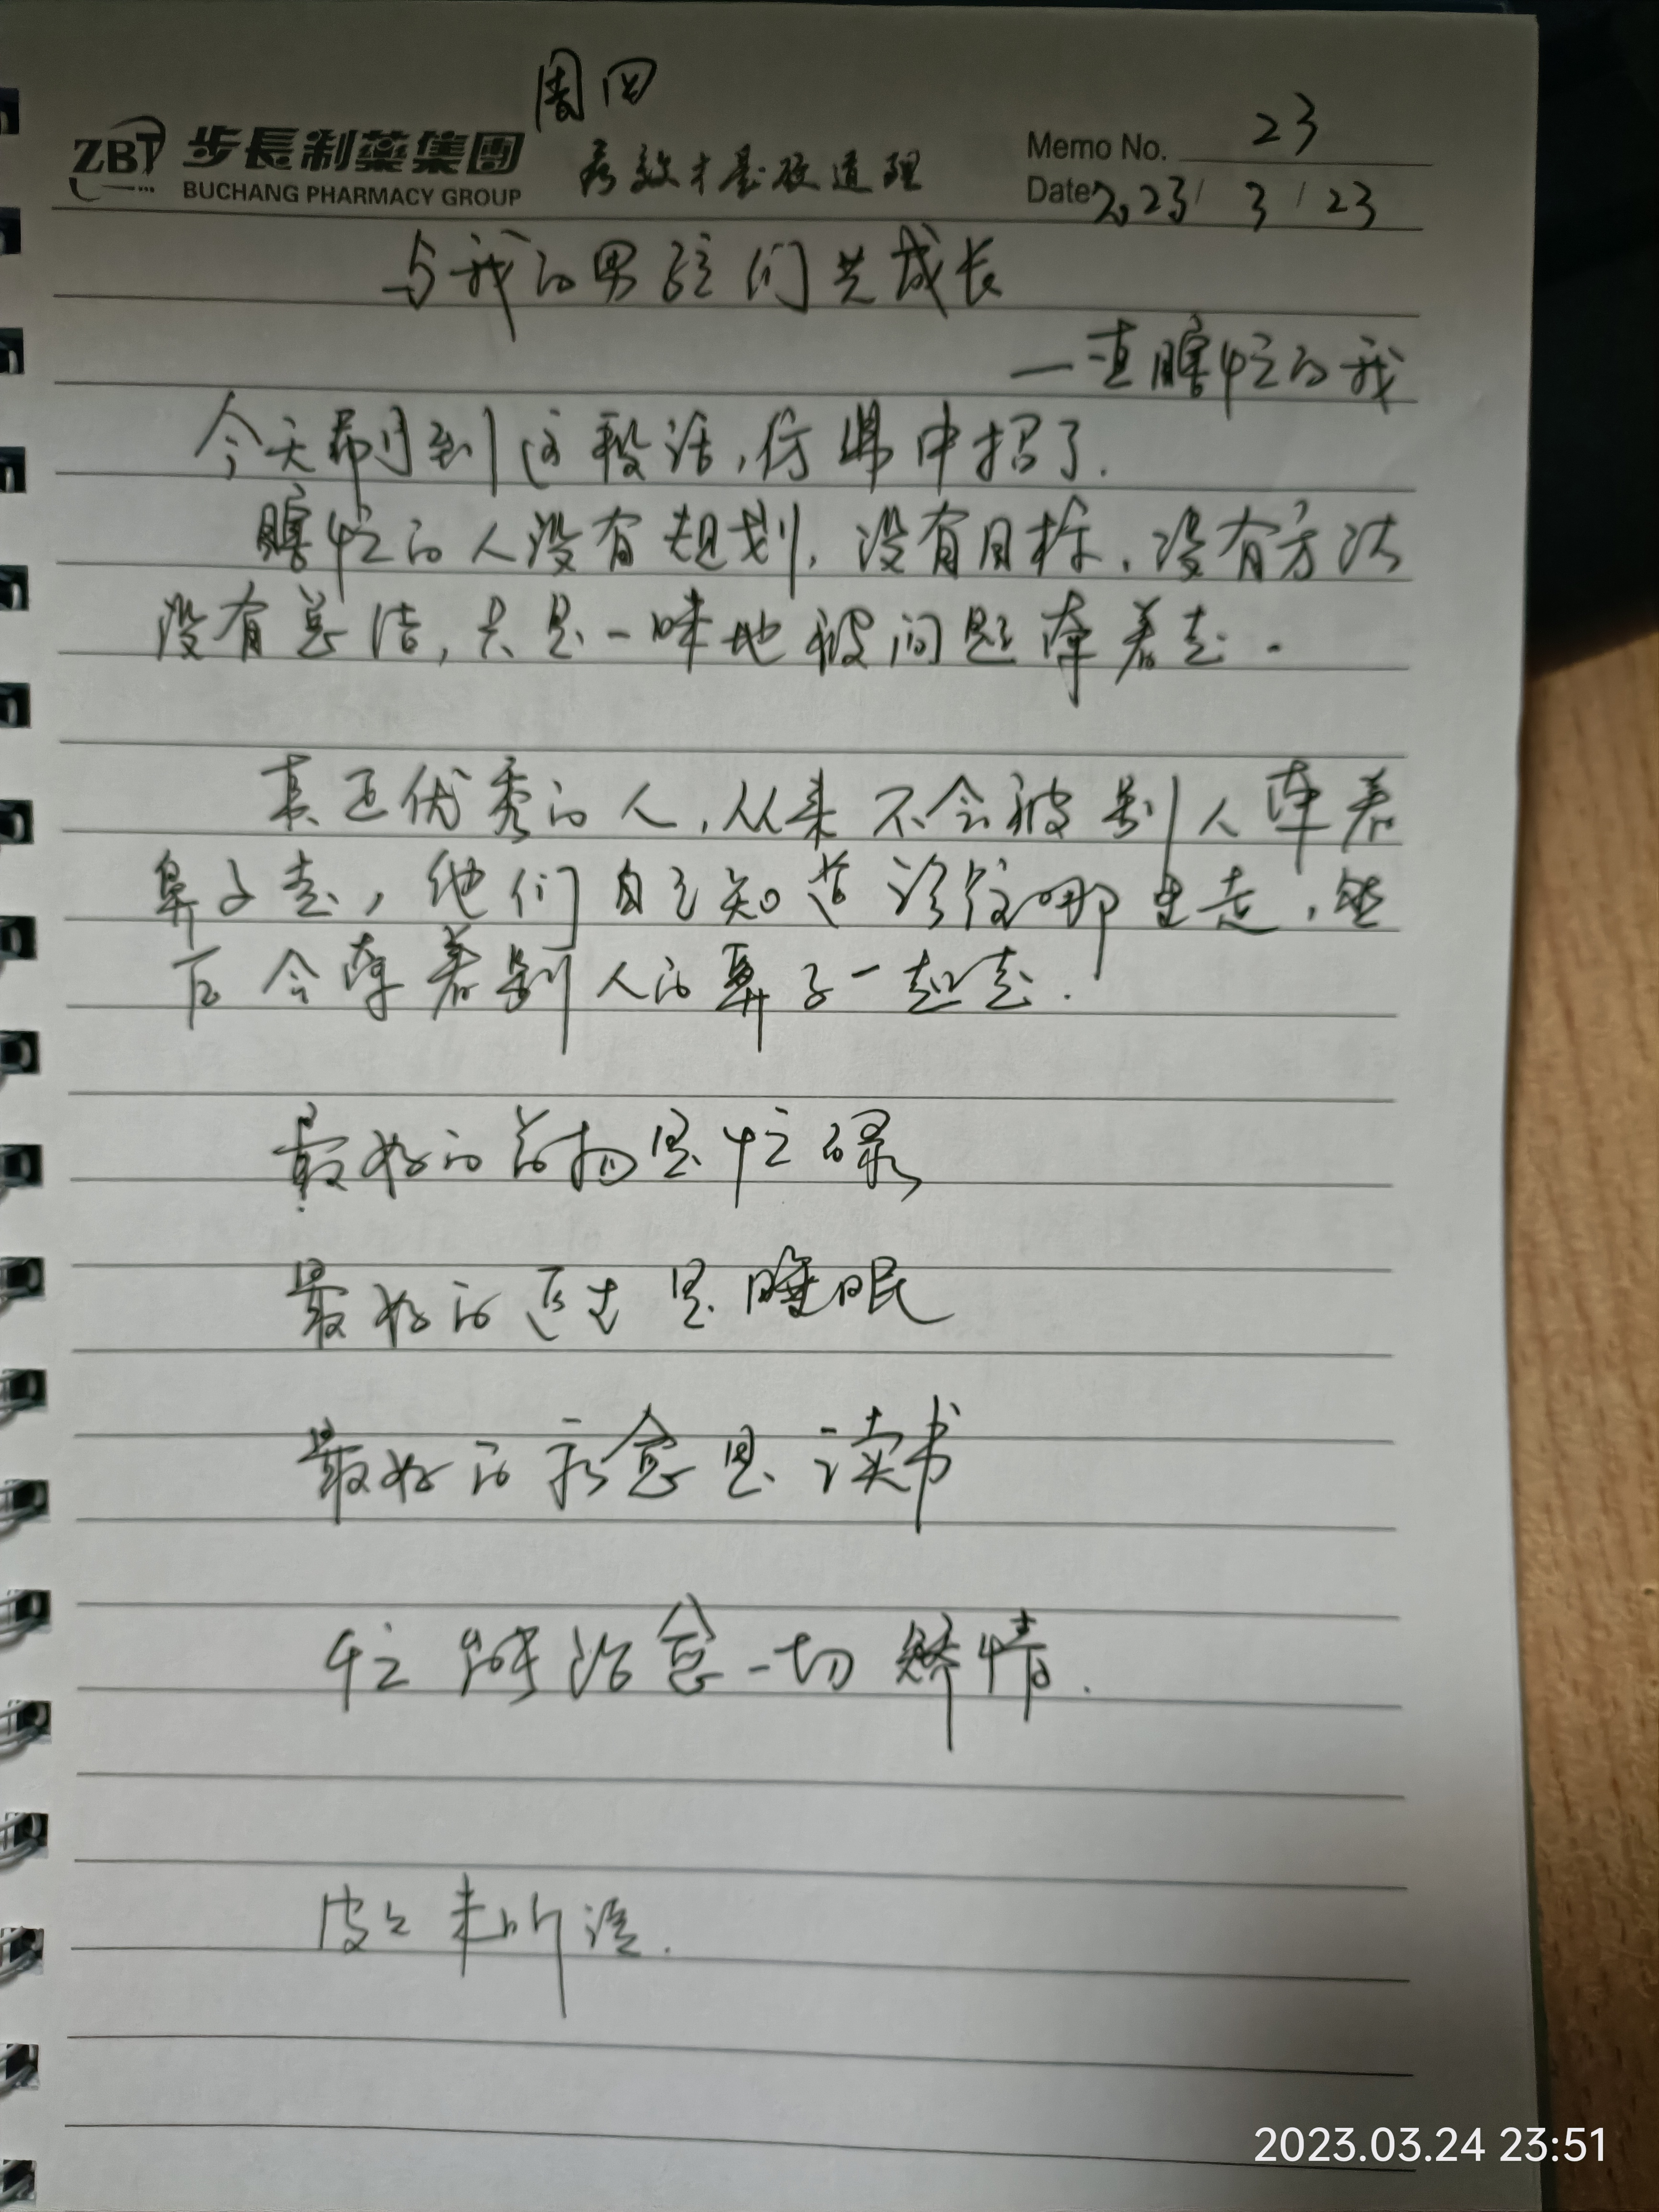 周四
ZBT 步長制藥集團
BUCHANG PHARMACY GROUP
疗效才是硬道理
Memo No. 23
Date 2023/ 3 / 23
与我的男孩们共成长
一直瞎忙的我
今天刷到这段话,仿佛中招了.
瞎忙的人没有规划,没有目标,没有方法
没有总结,只是一味地被问题牵着走.
真正优秀的人,从来不会被别人牵着
鼻子走,他们自己知道该往哪里走,然
后会牵着别人的鼻子一起走.
最好的药物是忙碌
最好的过去是睡眠
最好的疗愈是读书
忙能治愈一切矫情.
皮皮未听读.